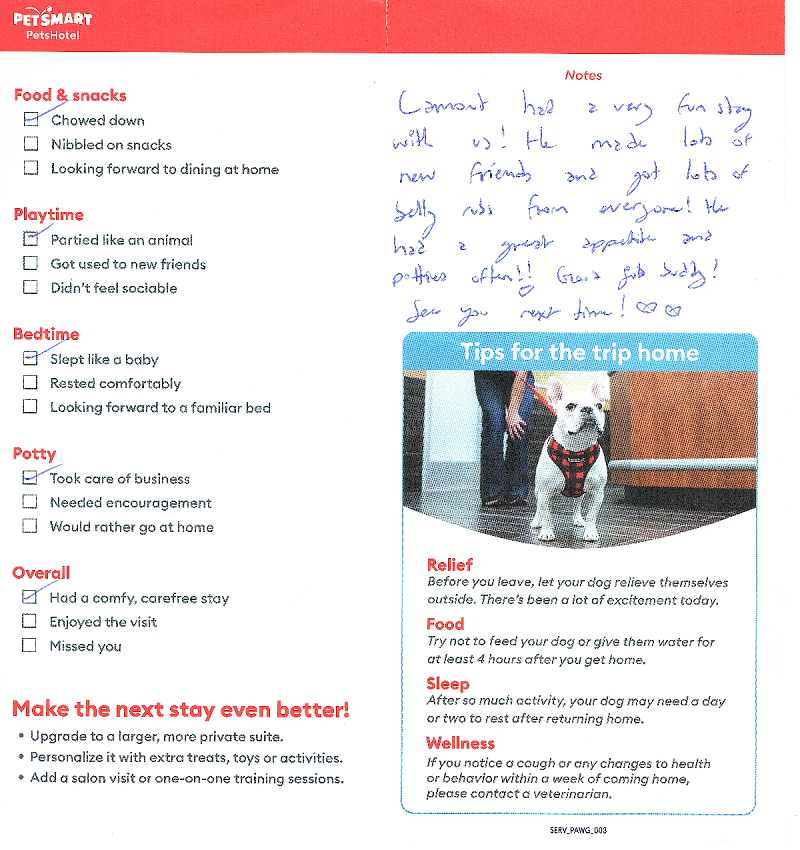 PETSMART
PetsHotel
Food & snacks
Chowed down
Nibbled on snacks
Looking forward to dining at home
Playtime
Partied like an animal
Got used to new friends
Didn't feel sociable
Bedtime
Slept like a baby
Rested comfortably
Looking forward to a familiar bed
Potty
Took care of business
Needed encouragement
Would rather go at home
Overall
Had a comfy, carefree stay
Enjoyed the visit
Missed you
Make the next stay even better!
• Upgrade to a larger, more private suite.
• Personalize it with extra treats, toys or activities.
• Add a salon visit or one-on-one training sessions.
Notes
Lamont had a very fun stay
with us! He made lots of
new friends and got lots of
belly rubs from everyone! He
had a great appetite and
potties often!! Good job buddy!
See you next time!
Tips for the trip home
Relief
Before you leave, let your dog relieve themselves
outside. There's been a lot of excitement today.
Food
Try not to feed your dog or give them water for
at least 4 hours after you get home.
Sleep
After so much activity, your dog may need a day
or two to rest after returning home.
Wellness
If you notice a cough or any changes to health
or behavior within a week of coming home,
please contact a veterinarian.
SERV_PAWG_003